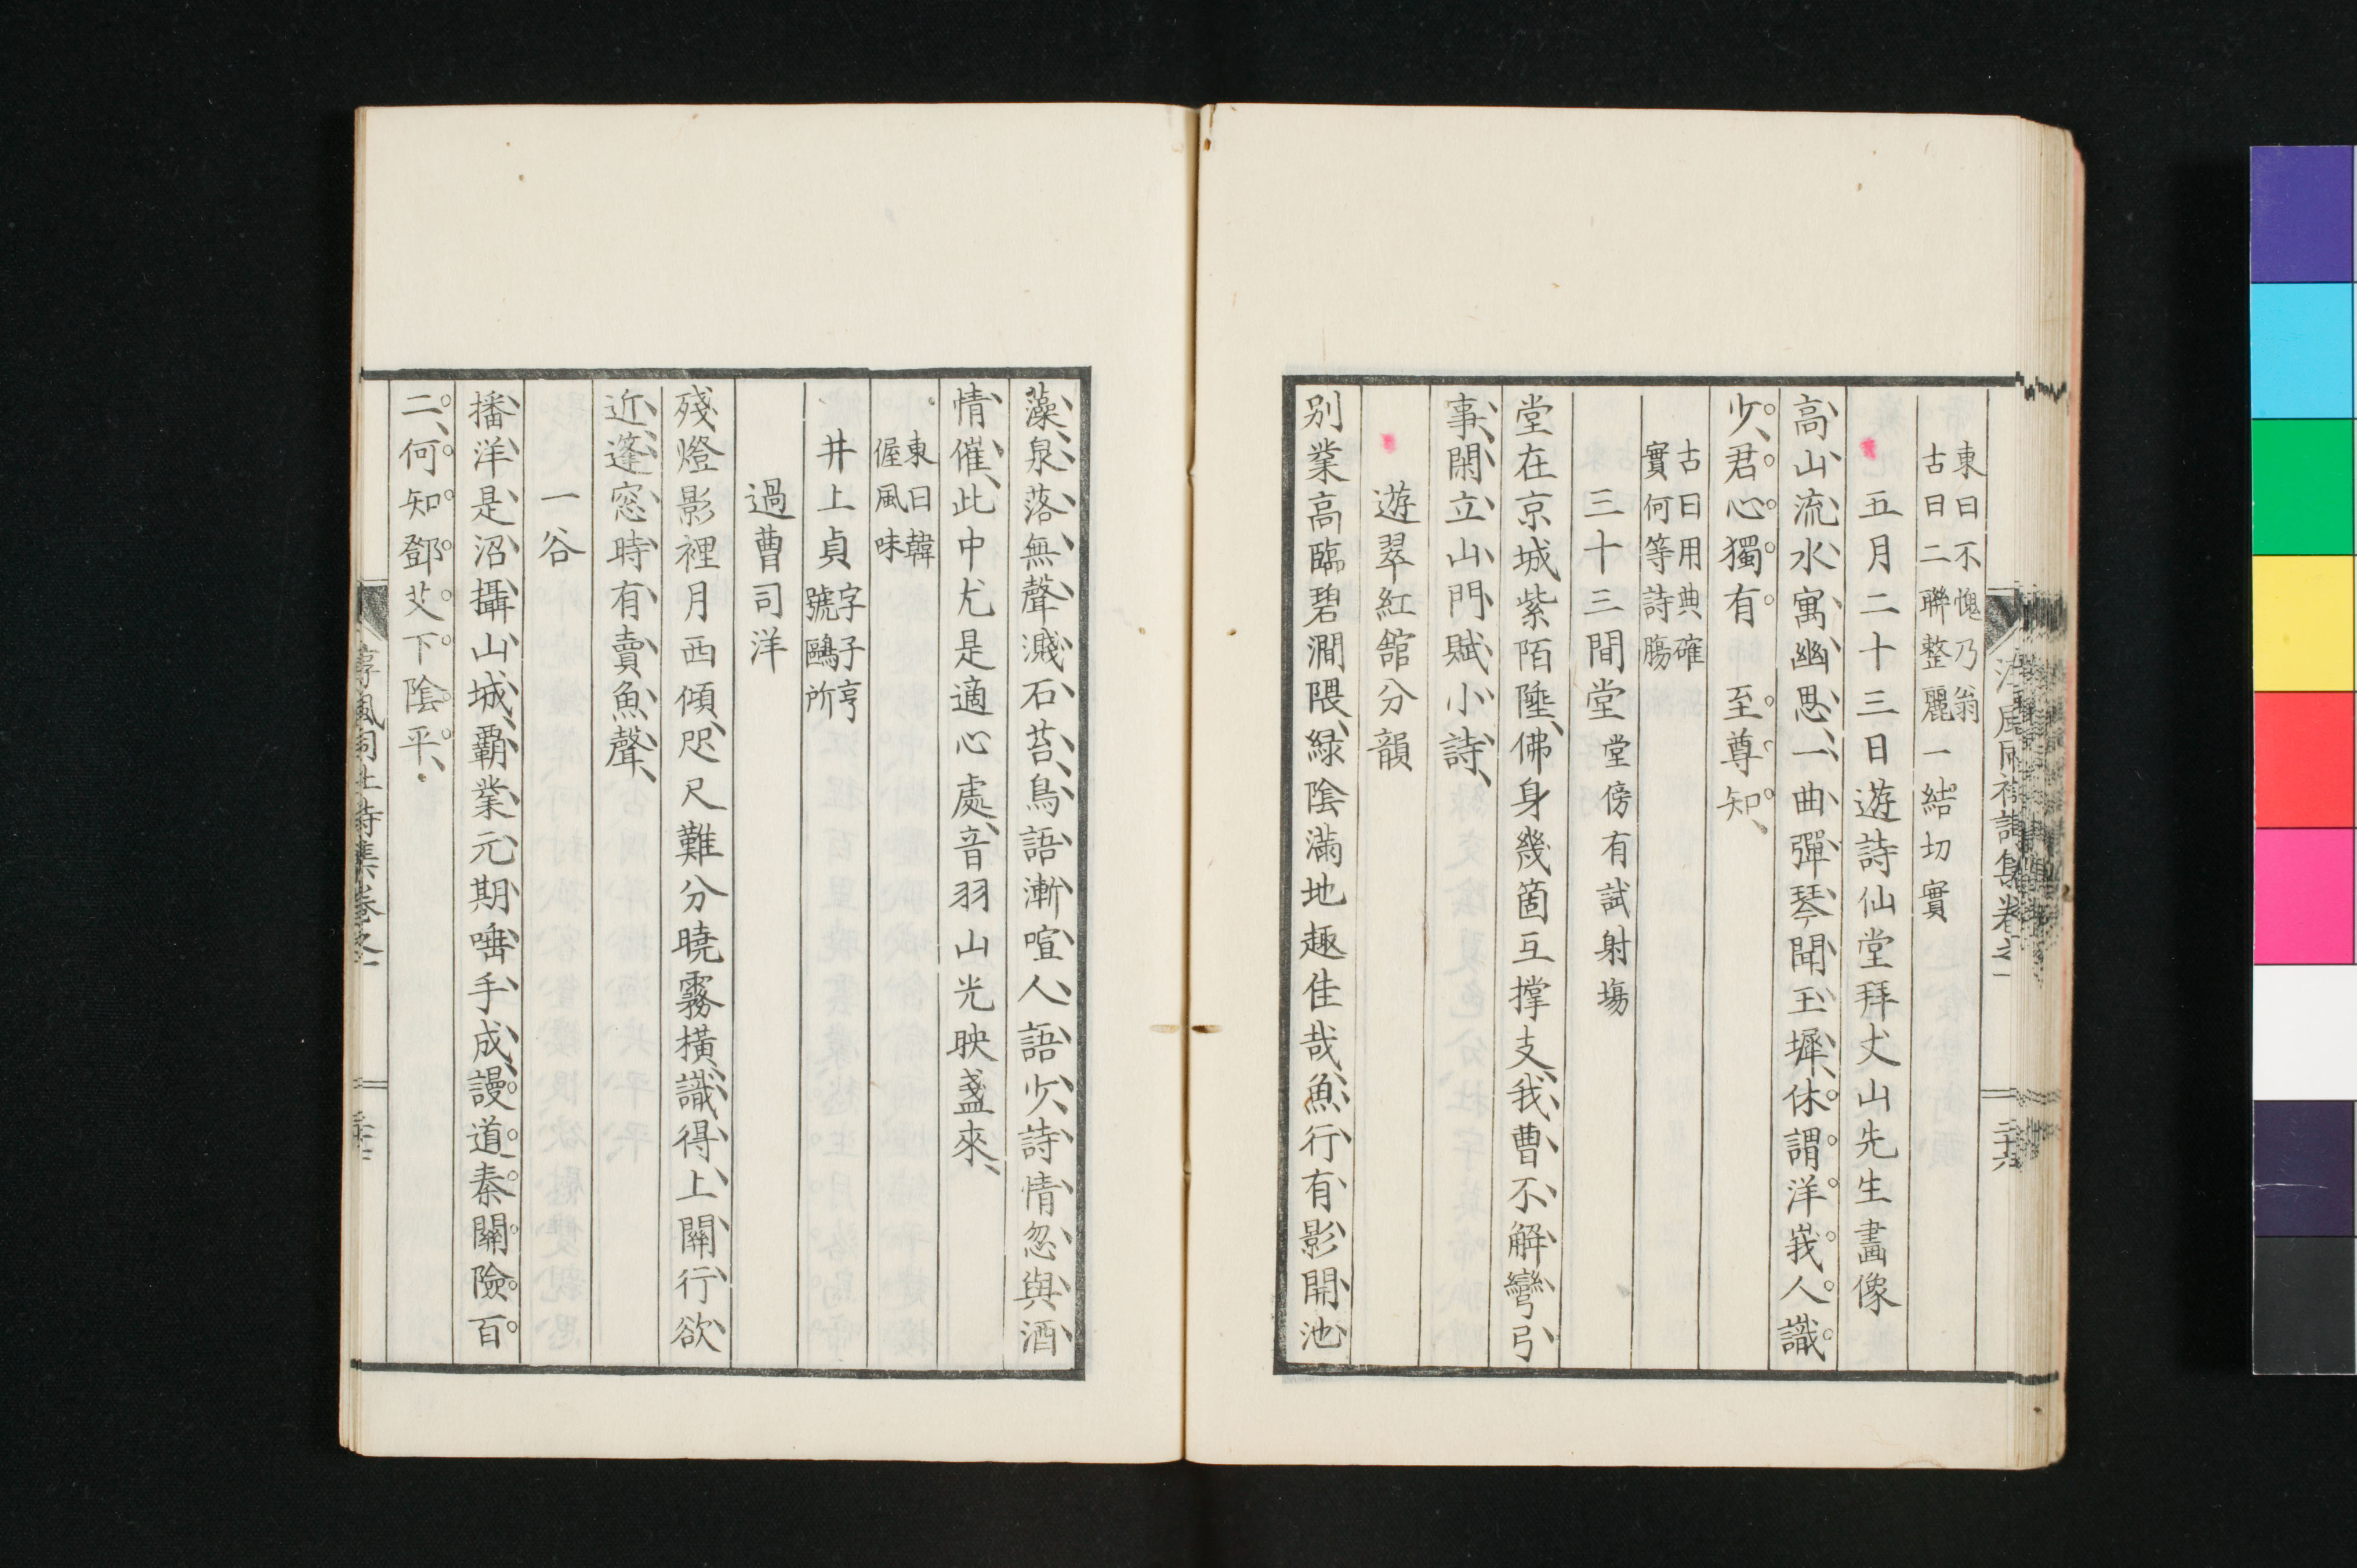 東曰不愧乃翁
古曰二聯整麗一結切實
五月二十三日遊詩仙堂拜丈山先生畫像
高山流水寓幽思一曲彈琴聞玉墀休謂洋峩人識
少君心獨有 至尊知
古曰用典確
實何等詩膓
三十三間堂堂傍有試射塲
堂在京城紫陌陲佛身幾箇互撑支我曹不解彎弓
事閑立山門賦小詩
遊翠紅舘分韻
別業高臨碧澗隈緑陰滿地趣佳哉魚行有影開池
藻泉落無聲濺石苔鳥語漸喧人語少詩情忽與酒
情催此中尤是適心處音羽山光映盞來
東曰韓
偓風味
井上貞字子亨
號鷗所
過曹司洋
殘燈影裡月西傾咫尺難分曉霧橫識得上關行欲
近篷窓時有賣魚聲
一谷
播洋是沼攝山城霸業元期唾手成謾道秦關險百
二何知鄧艾下陰平